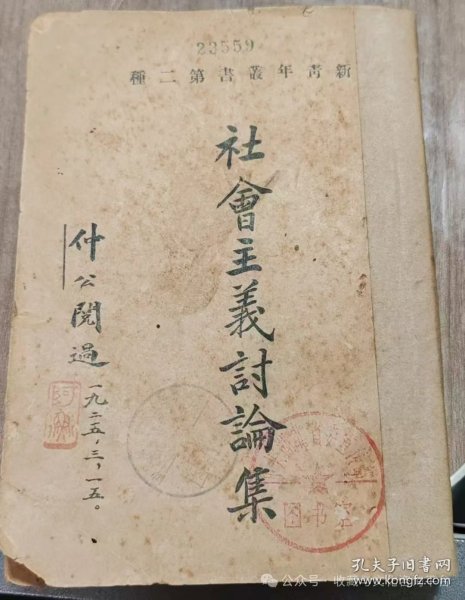 23559
新青年叢書第二種
社會主義討論集
仲公閱過
一九二五,三,一五。
图书室
公众号·收藏
孔夫子旧书网
www.kongfz.com